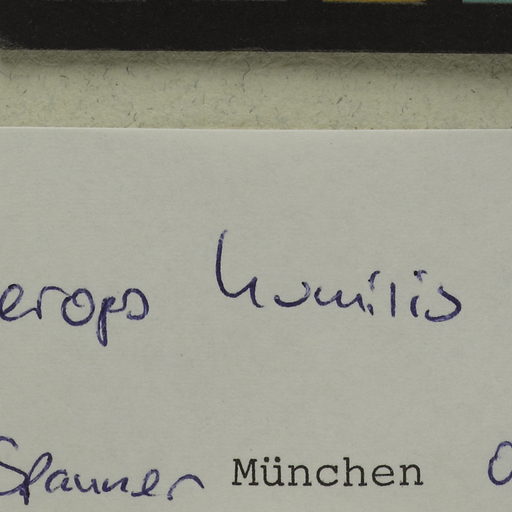 erops humilis
Spanner München